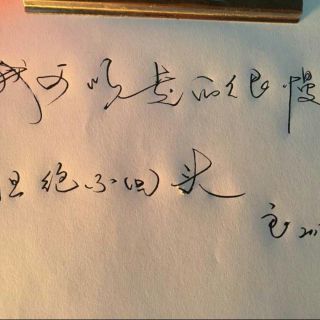 我可以走的很慢
但绝不回头